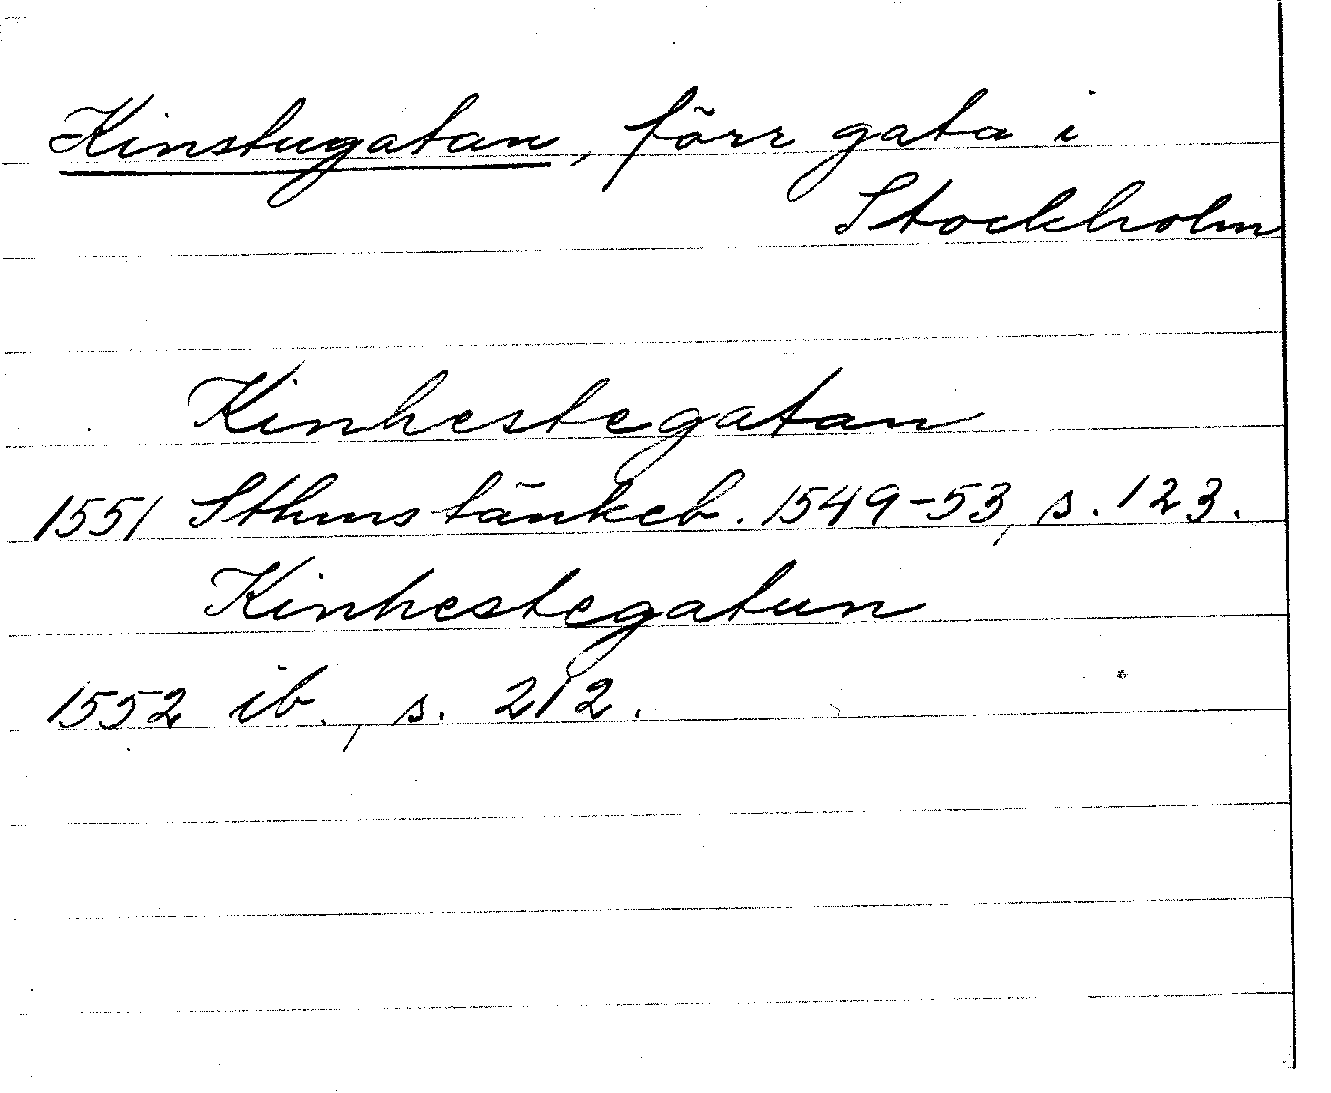 Kinstugatan, förr gata i
Stockholm
Kinhestegatan
1551 Sthms tänkeb. 1549-53, s. 123.
Kinhestegatun
1552 ib., s. 212.